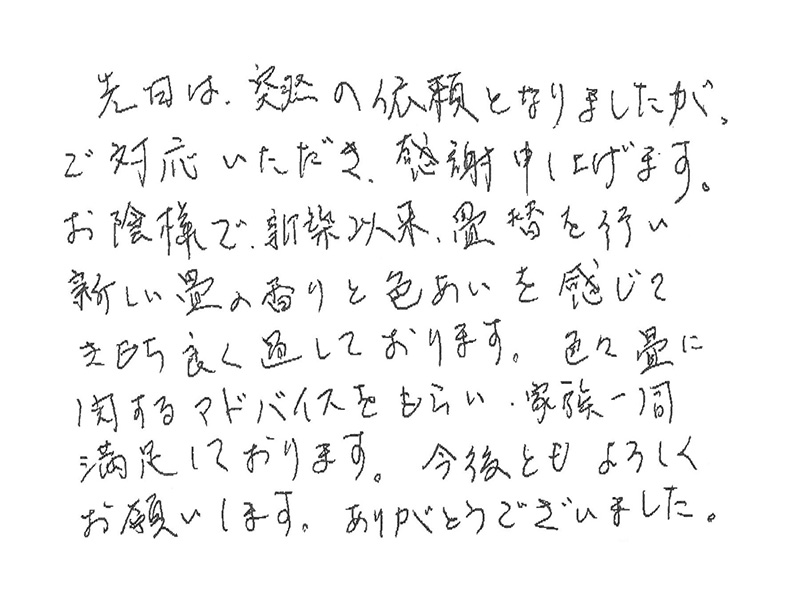 先日は、突然の依頼となりましたが、
ご対応いただき、感謝申し上げます。
お陰様で、新築以来、畳替を行い
新しい畳の香りと色あいを感じて
き口ち良く過しております。色々畳に
関するアドバイスをもらい、家族一同
満足しております。今後ともよろしく
お願いします。ありがとうございました。